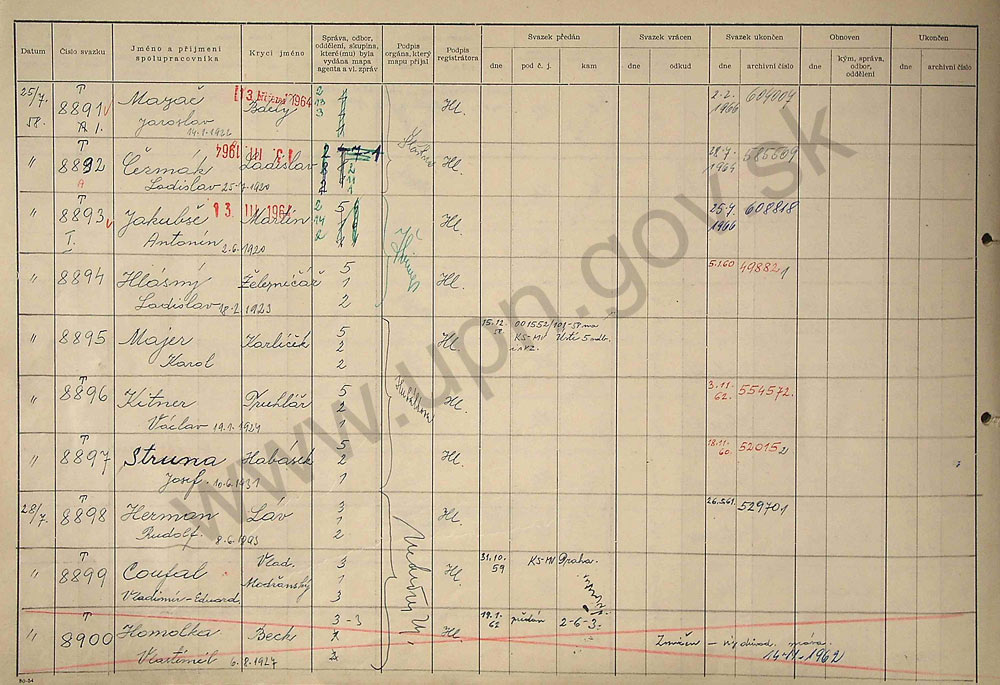 Datum
Číslo svazku
Jméno a příjmení
spolupracovníka
Krycí jméno
Správa, odbor,
oddělení, skupina,
které(mu) byla
vydána mapa
agenta a vl. zpráv
Podpis
orgána, který
mapu přijal
Podpis
registrátora
Svazek předán
dne
pod č. j.
kam
Svazek vrácen
dne
odkud
Svazek ukončen
dne
archivní číslo
Obnoven
dne
kým, správa,
odbor,
oddělení
Ukončen
dne
archivní číslo
25/7. 58.
T 8891
A I.
Mazač
Jaroslav
13 1964
2 13 3
Hl.
2.2. 1966
604004
" T 8892
A
Čermák
Ladislav 25. 7. 1920
13. III 1964
Ladislav
Hl.
28.7. 1964
585509
" T 8893
I.
Jakubše
Antonín 2.6.1920
13. III 1964
Martin
5
2 14 2
Hl.
25.7. 1966
608818
" 8894
Hlásný
Ladislav 18.2.1923
Železničář
5
1
2
Hl.
5.1.60
49882 1
" 8895
Majer
Karol
Karlíček
5
2
2
Hl.
15.12. 58
001552/101-58
KS-MV Ústí 5 odb.
" T 8896
Kitner
Václav 19.1.1924
Truhlář
5
2
1
Hl.
3.11. 62.
554572.
" T 8897
Struna
Josef. 10.6.1931
Habásek
5
2
1
Hl.
18.11. 60.
52015 2
28/7. T 8898
Herman
Rudolf. 8.6.1893
Láv
3
1
2
Hl.
26.5.61.
52970 1
" T 8899
Coufal
Vladimír-Eduard.
Vlad.
Modřanský
3
1
3
Hl.
31.10. 59
KS-MV Praha.
" T 8900
Homolka
Vlastimil 6.8.1927
Beck
3-3
1
2
Hl.
19.1. 62
předán
2-6-3-
14-11-1962
www.upn.gov.sk